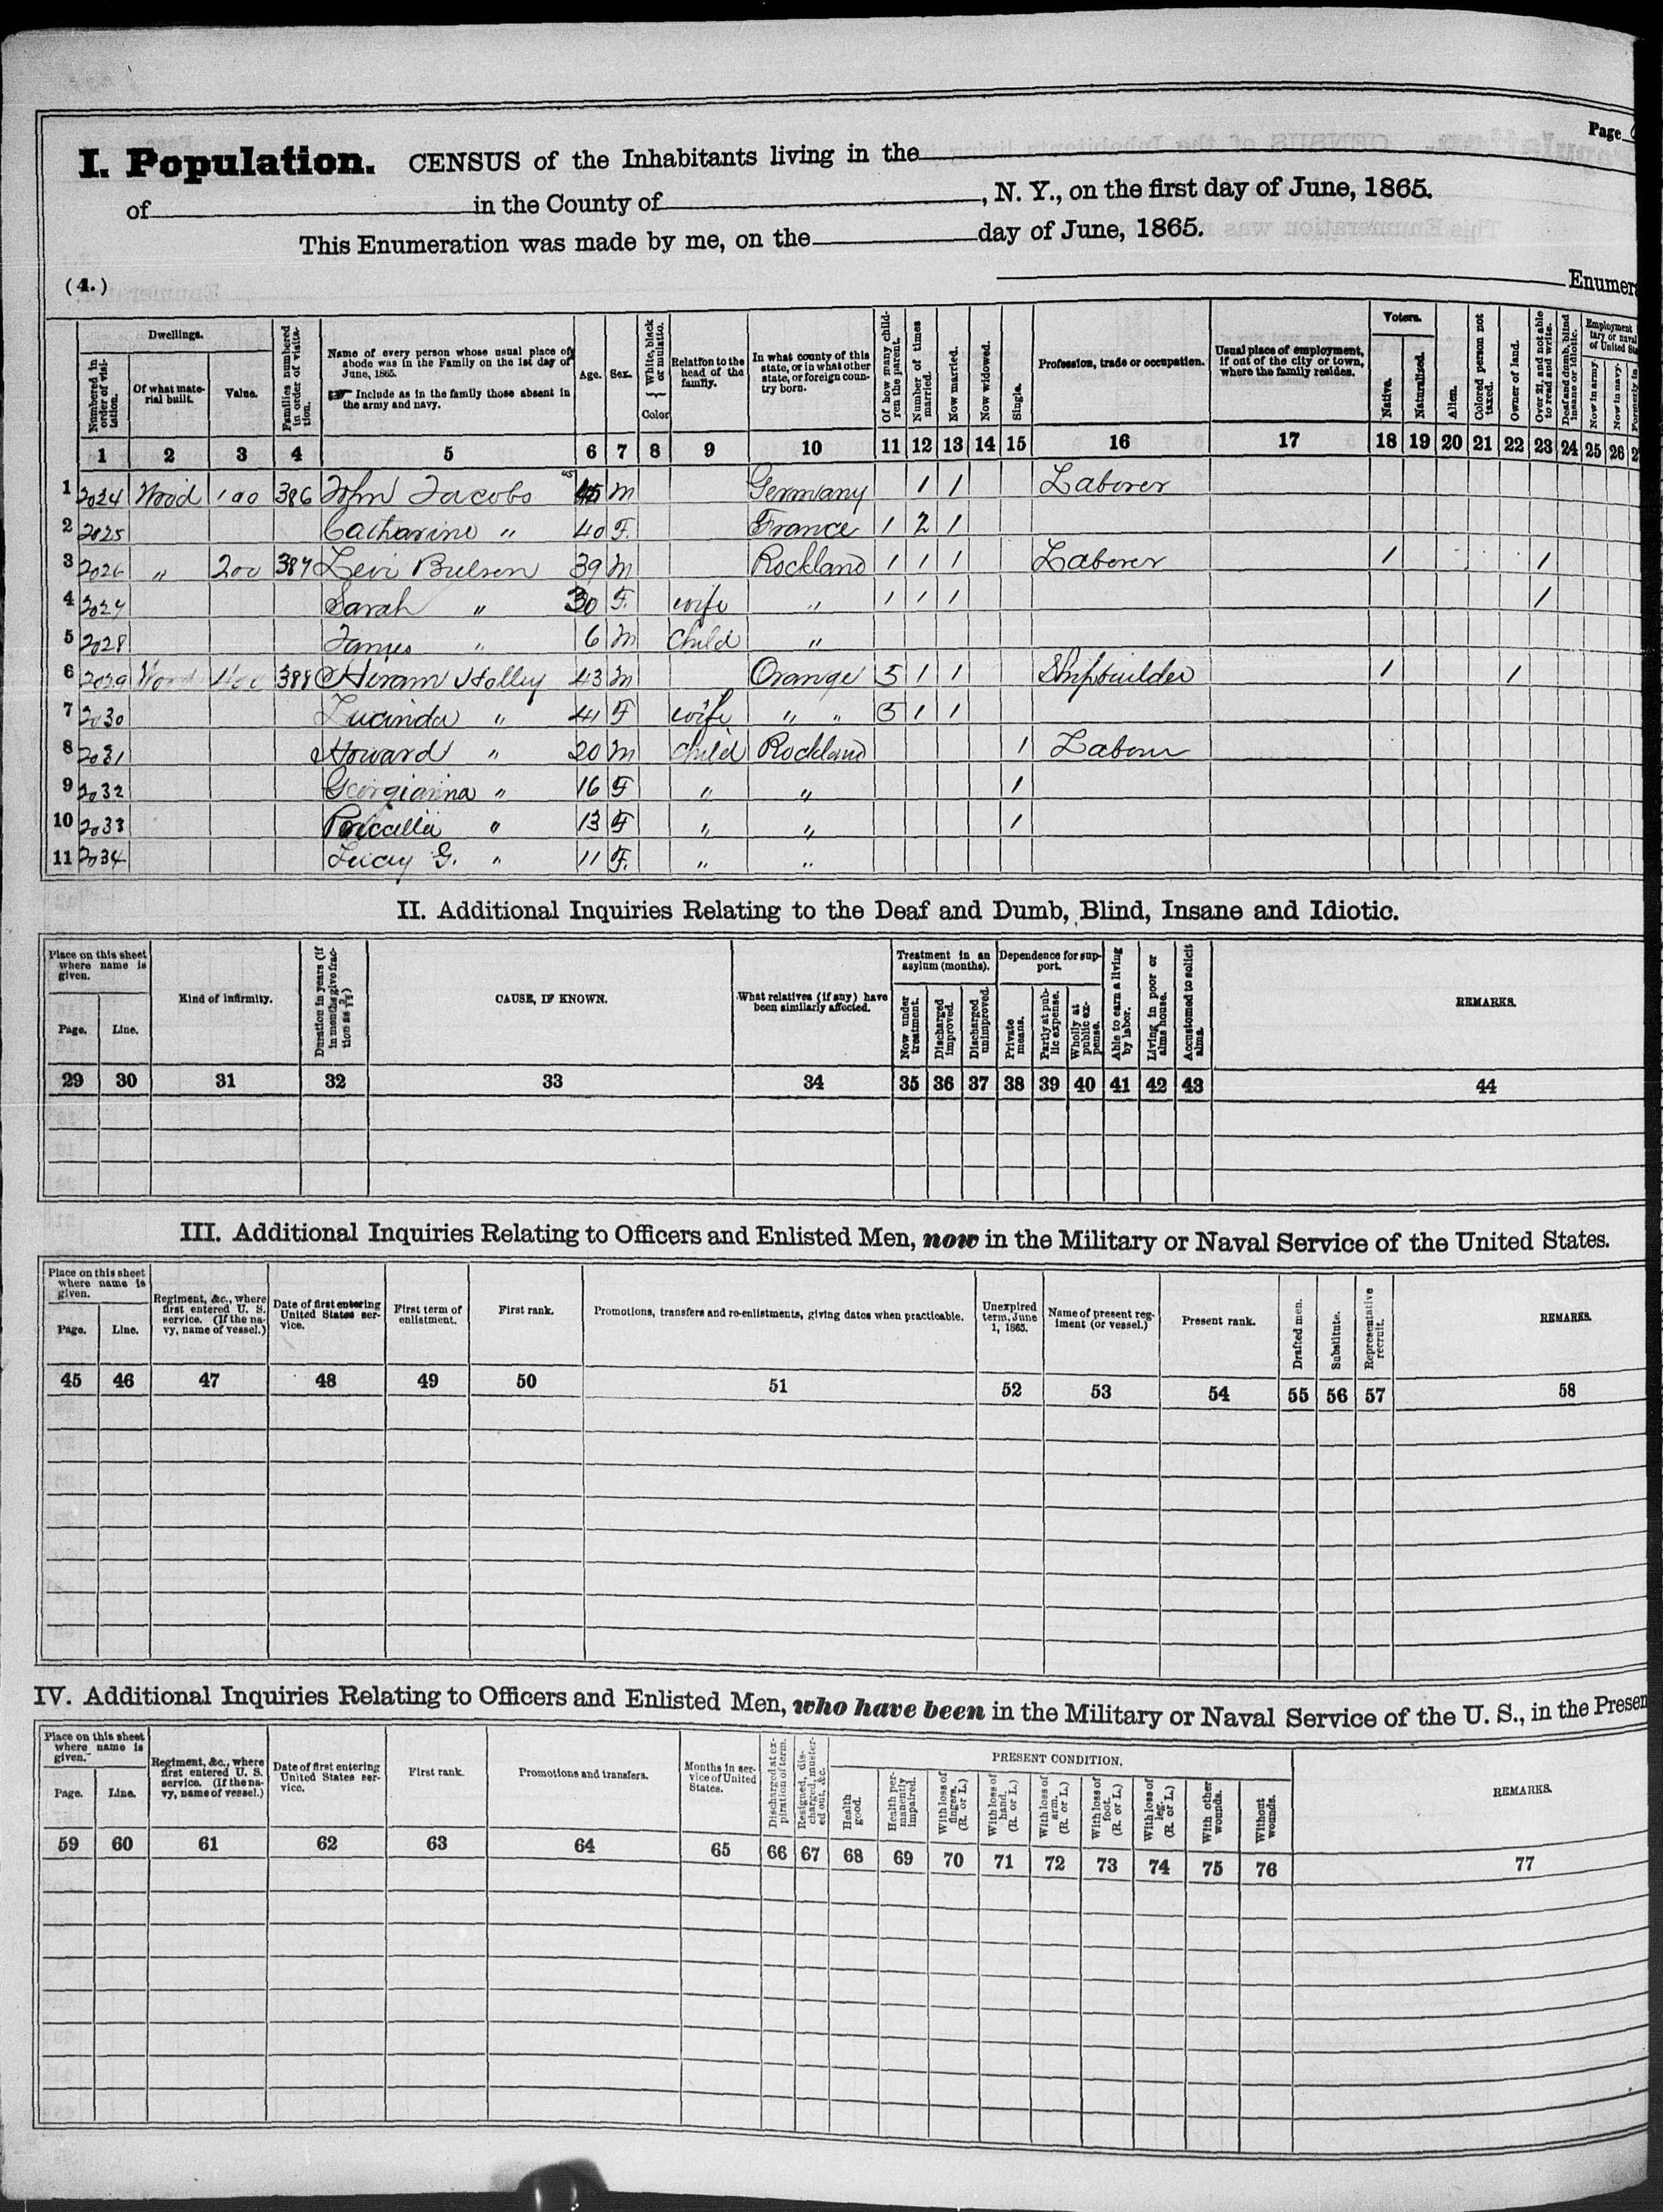 Page
I. Population. CENSUS of the Inhabitants living in the
of in the County of , N. Y., on the first day of June, 1865.
This Enumeration was made by me, on the day of June, 1865.
(4.) Enumer
Numbered in order of visitation.
Dwellings.
Of what material built.
Value.
Families numbered in order of visitation.
Name of every person whose usual place of abode was in the Family on the 1st day of June, 1865.
☞ Include as in the family those absent in the army and navy.
Age.
Sex.
White, black or mulatto.
Color
Relation to the head of the family.
In what county of this state, or in what other state, or foreign country born.
Of how many children the parent.
Number of times married.
Now married.
Now widowed.
Single.
Profession, trade or occupation.
Usual place of employment, if out of the city or town, where the family resides.
Voters.
Native.
Naturalized.
Alien.
Colored person not taxed.
Owner of land.
Over 21, and not able to read and write.
Deaf and dumb, blind insane or idiotic.
Employment
tary or naval
of United St
Now in army
Now in navy.
Formerly in
1 2 3 4 5 6 7 8 9 10 11 12 13 14 15 16 17 18 19 20 21 22 23 24 25 26 2
1 2024 Wood 100 386 John Jacobs 45 M Germany 1 1 Laborer
2 2025 Catharine " 40 F. France 1 2 1
3 2026 " 200 387 Levi 39 M Rockland 1 1 1 Laborer 1 1
4 2027 Sarah " 30 F. wife " 1 1 1 1
5 2028 James " 6 M Child "
6 2029 Wood 388 Hiram Holley 43 M Orange 5 1 1 Shipbuilder 1 1
7 2030 Lucinda " 41 F wife " " 5 1 1
8 2031 Howard " 20 M child Rockland 1 Laborer
9 2032 Georgianna " 16 F " " 1
10 2033 " 13 F " " 1
11 2034 Lucy G. " 11 F. " "
II. Additional Inquiries Relating to the Deaf and Dumb, Blind, Insane and Idiotic.
Place on this sheet where name is given.
Page.
Line.
Kind of infirmity.
Duration in years (if in months give fraction as 3/12)
CAUSE, IF KNOWN.
What relatives (if any) have been similarly affected.
Treatment in an asylum (months).
Now under treatment.
Discharged improved.
Discharged unimproved.
Dependence for support.
Private means.
Partly at public expense.
Wholly at public expense.
Able to earn a living by labor.
Living in poor or alms house.
Accustomed to solicit alms.
REMARKS.
29 30 31 32 33 34 35 36 37 38 39 40 41 42 43 44
III. Additional Inquiries Relating to Officers and Enlisted Men, now in the Military or Naval Service of the United States.
Place on this sheet where name is given.
Page.
Line.
Regiment, &c., where first entered U. S. service. (If the navy, name of vessel.)
Date of first entering United States service.
First term of enlistment.
First rank.
Promotions, transfers and re-enlistments, giving dates when practicable.
Unexpired term, June 1, 1865.
Name of present regiment (or vessel.)
Present rank.
Drafted men.
Substitute.
Representative recruit.
REMARKS.
45 46 47 48 49 50 51 52 53 54 55 56 57 58
IV. Additional Inquiries Relating to Officers and Enlisted Men, who have been in the Military or Naval Service of the U. S., in the Presen
Place on this sheet where name is given.
Page.
Line.
Regiment, &c., where first entered U. S. service. (If the navy, name of vessel.)
Date of first entering United States service.
First rank.
Promotions and transfers.
Months in service of United States.
Discharged at expiration of term.
Resigned, discharged, mustered out, &c.
PRESENT CONDITION.
Health good.
Health permanently impaired.
With loss of fingers. (R. or L.)
With loss of hand. (R. or L.)
With loss of arm. (R. or L.)
With loss of foot. (R. or L.)
With loss of leg. (R. or L.)
With other wounds.
Without wounds.
REMARKS.
59 60 61 62 63 64 65 66 67 68 69 70 71 72 73 74 75 76 77